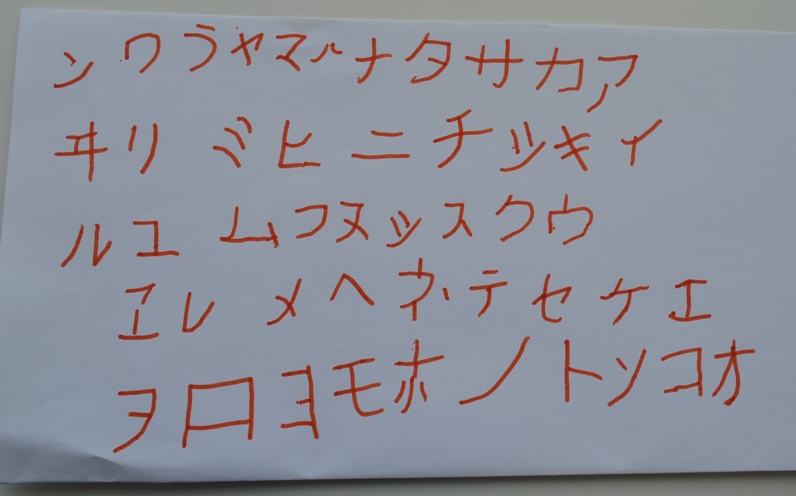 ンワラヤマハナタサカア
ヰリミヒニチシキイ
ルユムフヌツスクウ
ヱレメヘネテセケエ
ヲロヨモホノトソコオ